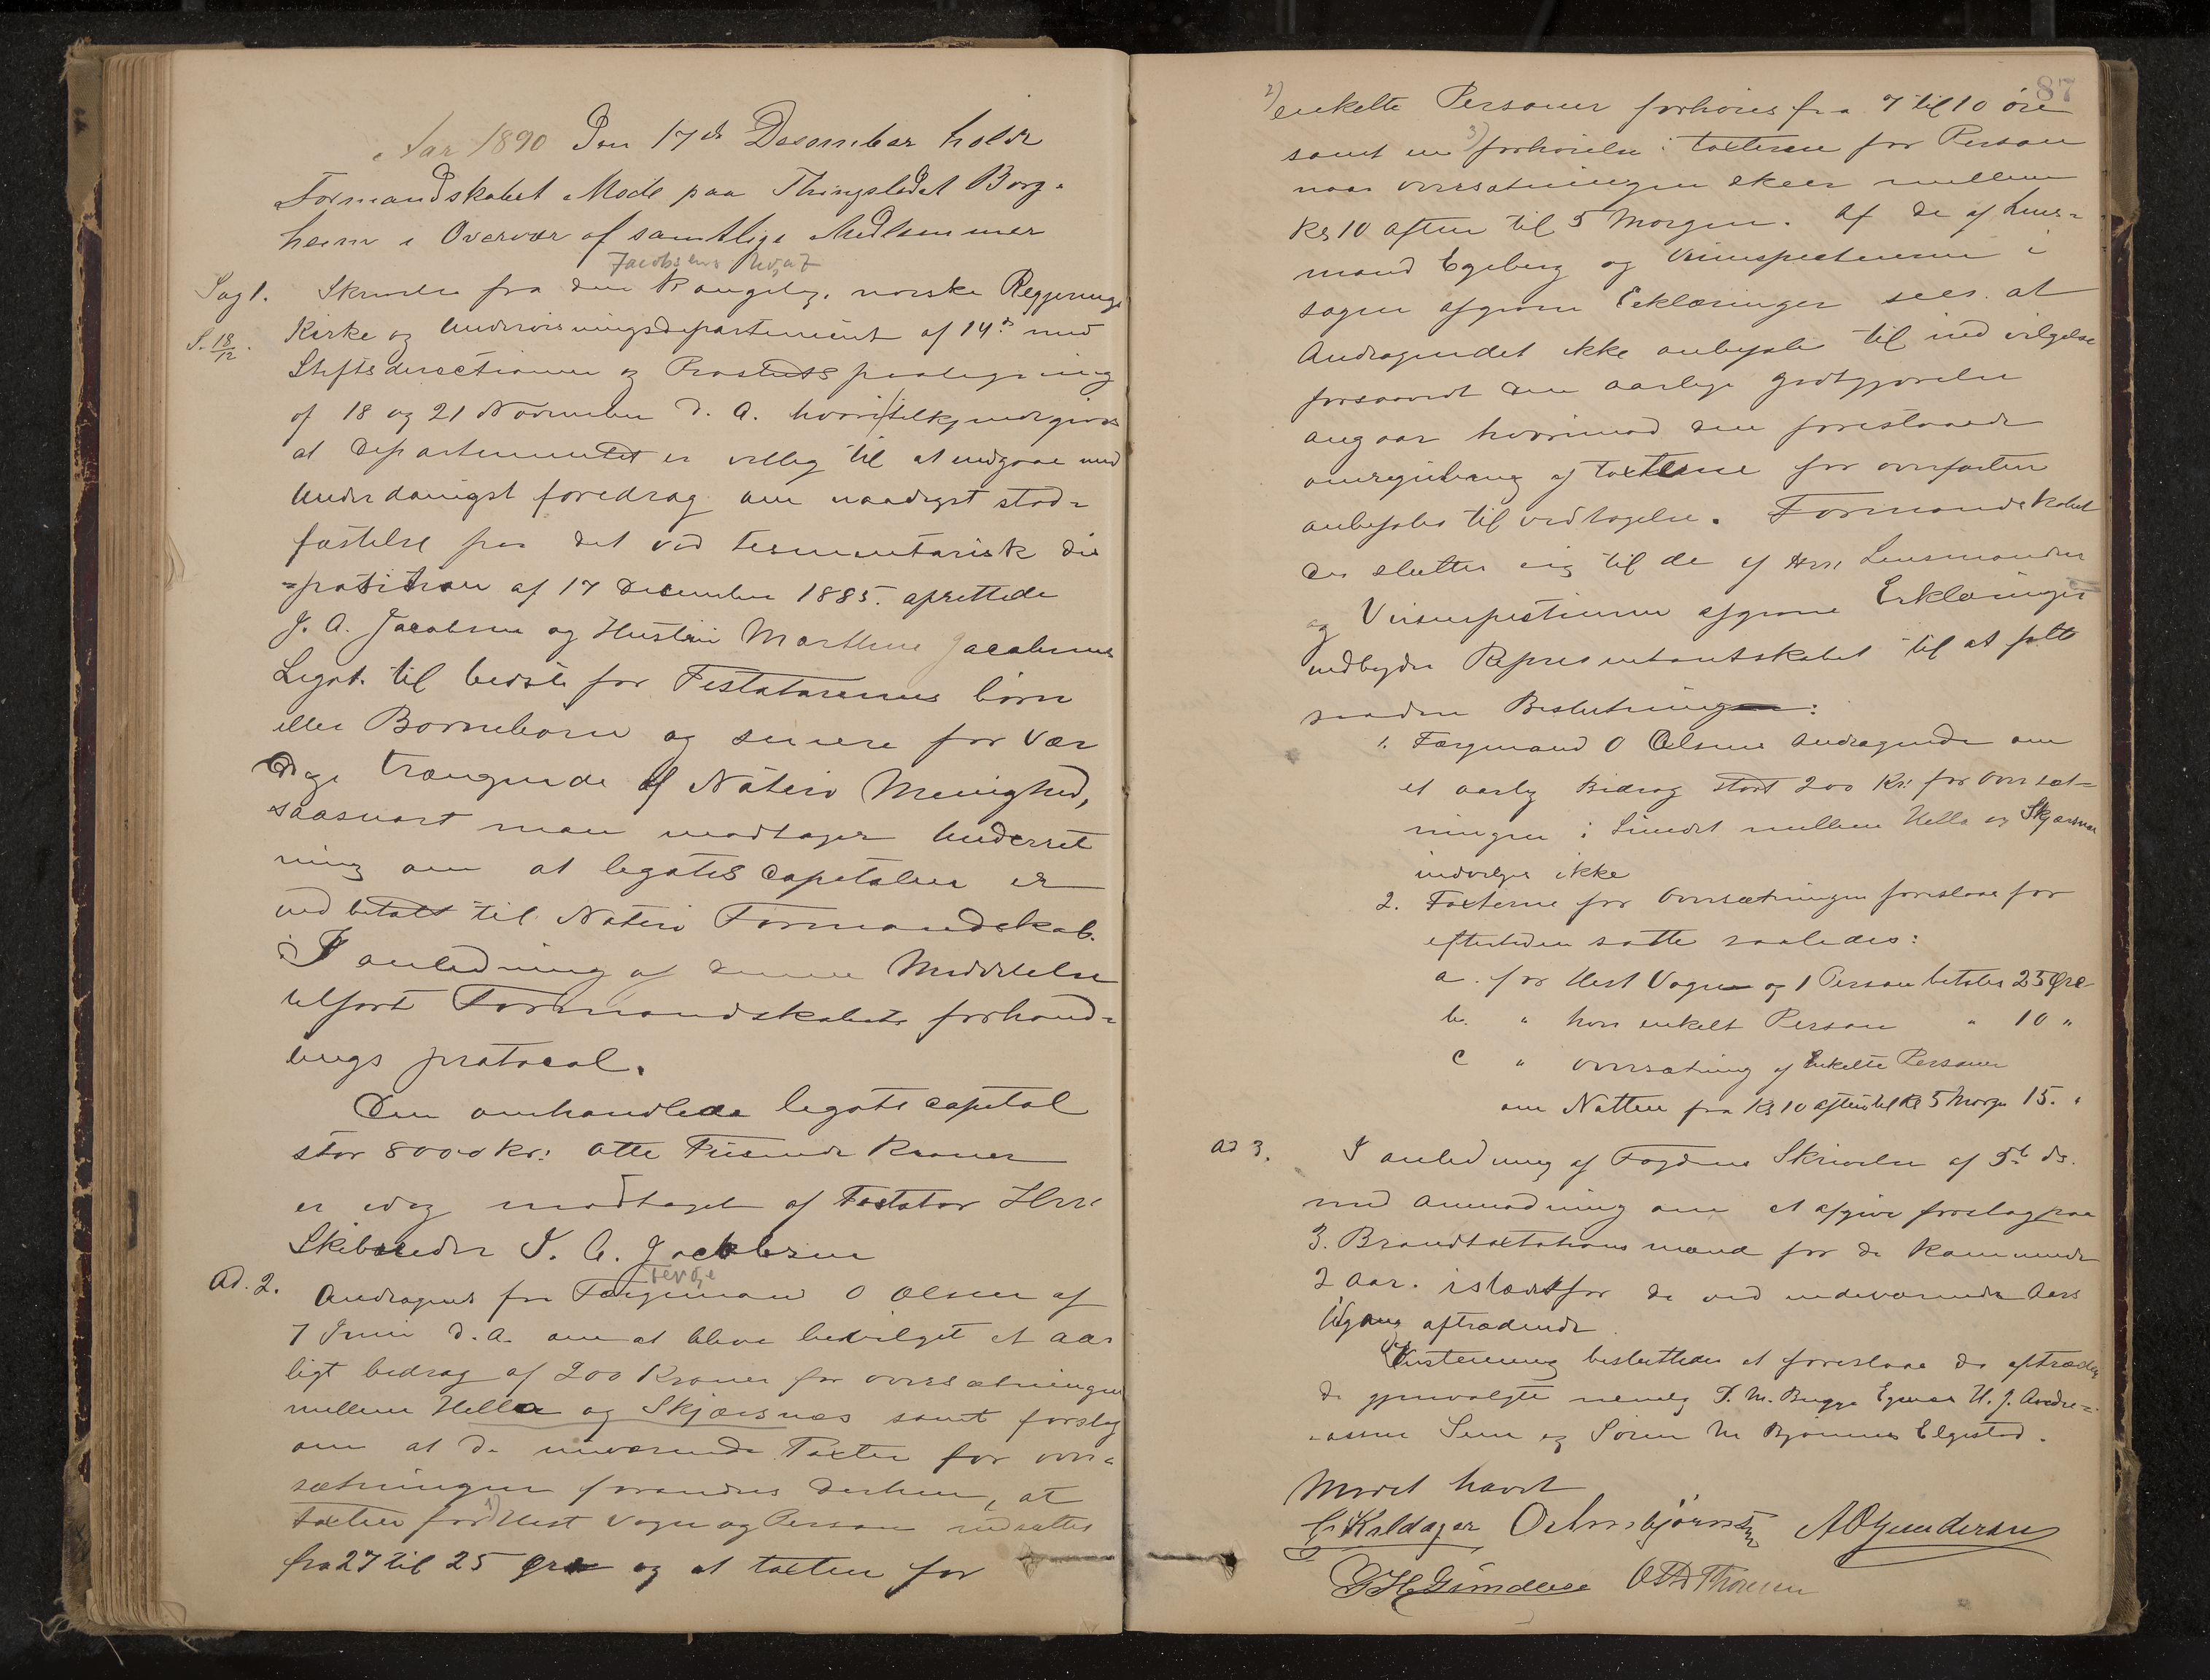 Aar 1890 Den 17de Desember holdt
Formandskabet Mode paa Thingstedet Borg-
heim i Overvær af samtlige Medlemmer
Jacobsens legat
Sag 1. Skrivelse fra den Kongelig. norske Regjerings
S. 18/12. Kirke og Undervisningsdepartement af 14de med
Stiftsdirectionen og Provstets paategning
af 18 og 21 November d. A. hvori tilkjendegives
at Departementet er villig til at indgaae med
Underdanigst foredrag om naadigst stad-
fæstelse paa det ved testmentarisk dis
=position af 17 December 1885. oprettede
J. A. Jacobsen og Hustru Marthine Jacobsens
Legat. til bedste for Testatorernes børn
eller Børnebørn og senere for vær
dige trængende af Nøterø Menighed,
saasnart man modtager Underret
ning om at legatets Capitalen er
indbetalt til Nøterø Formandskab.
I anledning af denne Meddelelse
tilført Formandskabets forhand-
lings protocol.
Den omhandlede legats capital
stor 8000 kr: otte Tusinde Kroner
er idag modtaget af Testator Herr
Skibsreder J. A. Jacobsen
Ferge
Ad. 2. Andragende fra Færgemand O Olsen af
7 Juni d. A. om at blive bevilget et aar
ligt bedrag af 200 Kroner for oversætningen
mellem Hella og Skjærsnæs samt forslag
om at de nuværende Taxter for over-
sætningen forandres derhen, at
taxten for 1) Hest Vogn og Person nedsættes
fra 27 til 25 øre og at taxten for
87
2) enkelte Personer forhøies fra 7 til 10 øre
samt en 3) forhøielse i taxterne for Person
naar oversætningen skeer mellem
Kl 10 aften til 5 Morgen. Af de af Lens-
mand Egeberg og Veiinspecteuren i
sagen afgivne Erklæringer sees at
Andragendet ikke anbefales til indvilgelse
forsaavidt den aarlige godtgjørelse
angaar hvorimod den foreslaaede
omregulering af taxterne for overfarten
anbefales til vedtagelse. Formandskabet
der slutter sig til de af Herr Lensmanden
og Veiinspecteuren afgivne Erklæringer
indbyder Repræsentantskabet til at fatte
saadan Beslutning:
1. Færgemand O Olsens Andragende om
et aarlig Bidrag stort 200 Kr: for Oversæt-
ningen i Sundet mellem Hella og Skjærsnæs
indvilges ikke
2. Taxterne for Oversætningen foreslaaes for
eftertiden satte saaledes:
a. for Hest Vogn og 1 Person betales 25 Øre
b. " hver enkelt Person " 10 "
c " oversætning af Enkelte Personer
om Natten fra Kl 10 aften til Kl 5 Morgen 15. "
Ad 3. I anledning af Fogdens Skrivelse af 5te ds.
med anmodning om at afgive forslag paa
3. Brandtaxtations mænd for de kommende
2 Aar. istædetfor de ved indeværende Aars
Udgang aftrædende.
besluttedes at foreslaae de aftræden
de gjenvalgte nemlig M. Bugge H. J. Andre-
assen Sem og Søren M Bjønnes Elgestad.
Mødet hævet
Kaldager O Arnsbjørnsen A O Gundersen
G H Gundersen Thoresen